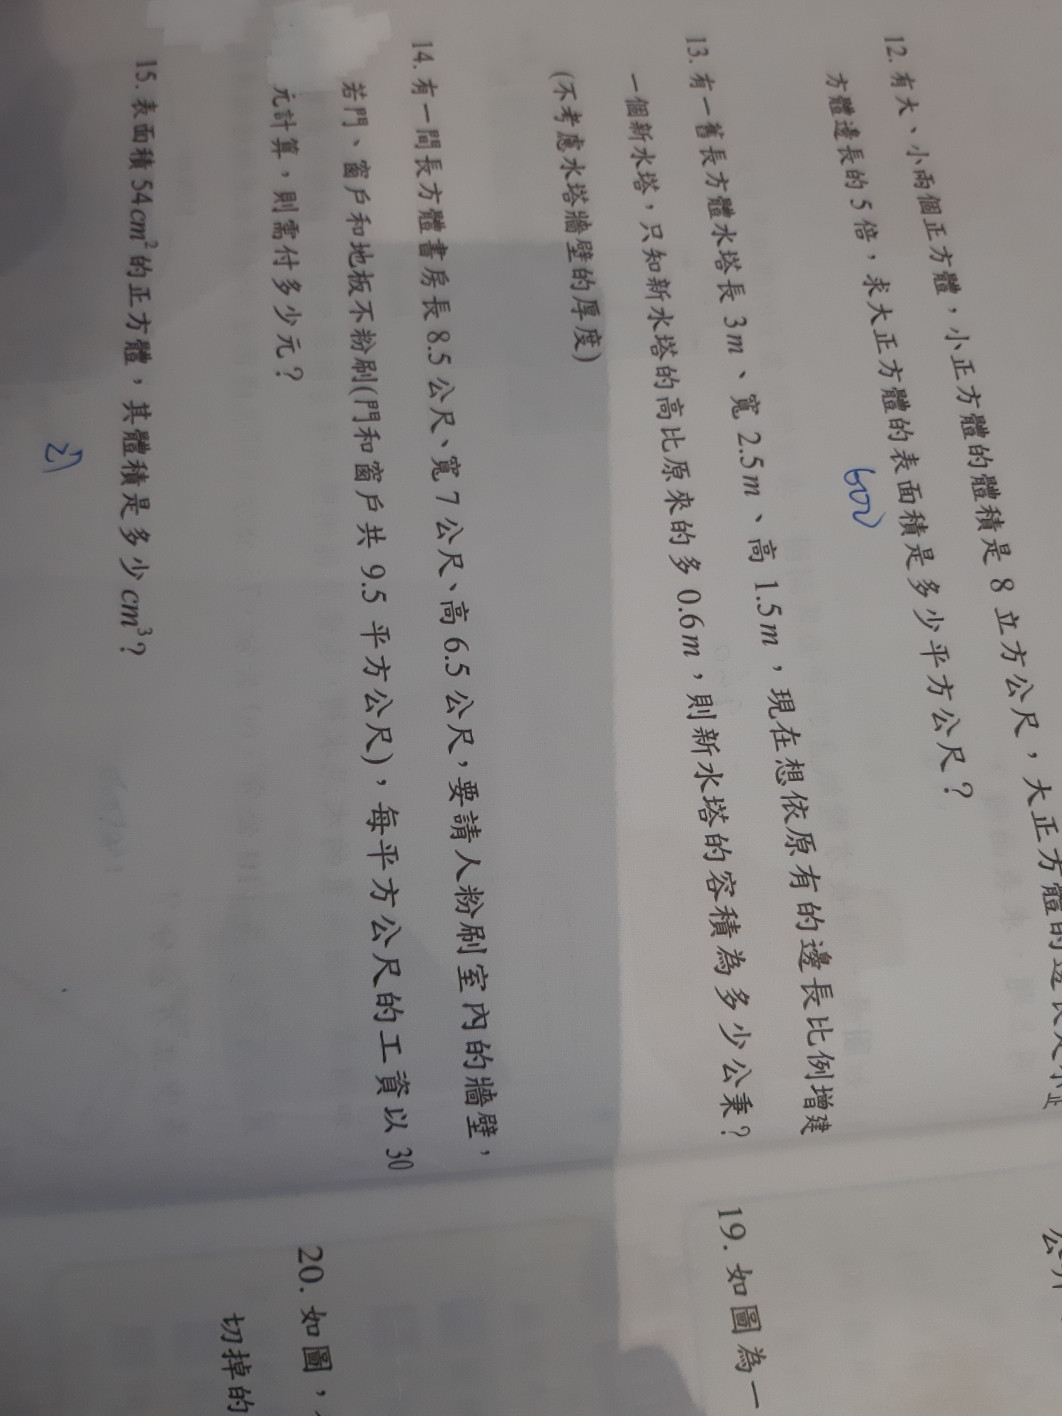 12. 有大、小兩個正方體，小正方體的體積是 8 立方公尺，大正方體的邊長是小正
方體邊長的 5 倍，求大正方體的表面積是多少平方公尺？
600
13. 有一舊長方體水塔長 3m、寬 2.5m、高 1.5m，現在想依原有的邊長比例增建
一個新水塔，只知新水塔的高比原來的多 0.6m，則新水塔的容積為多少公秉？
(不考慮水塔牆壁的厚度)
14. 有一間長方體書房長 8.5 公尺、寬 7 公尺、高 6.5 公尺，要請人粉刷室內的牆壁，
若門、窗戶和地板不粉刷(門和窗戶共 9.5 平方公尺)，每平方公尺的工資以 30
元計算，則需付多少元？
15. 表面積 54cm²的正方體，其體積是多少 cm³？
19. 如圖為一
20. 如圖，
切掉的